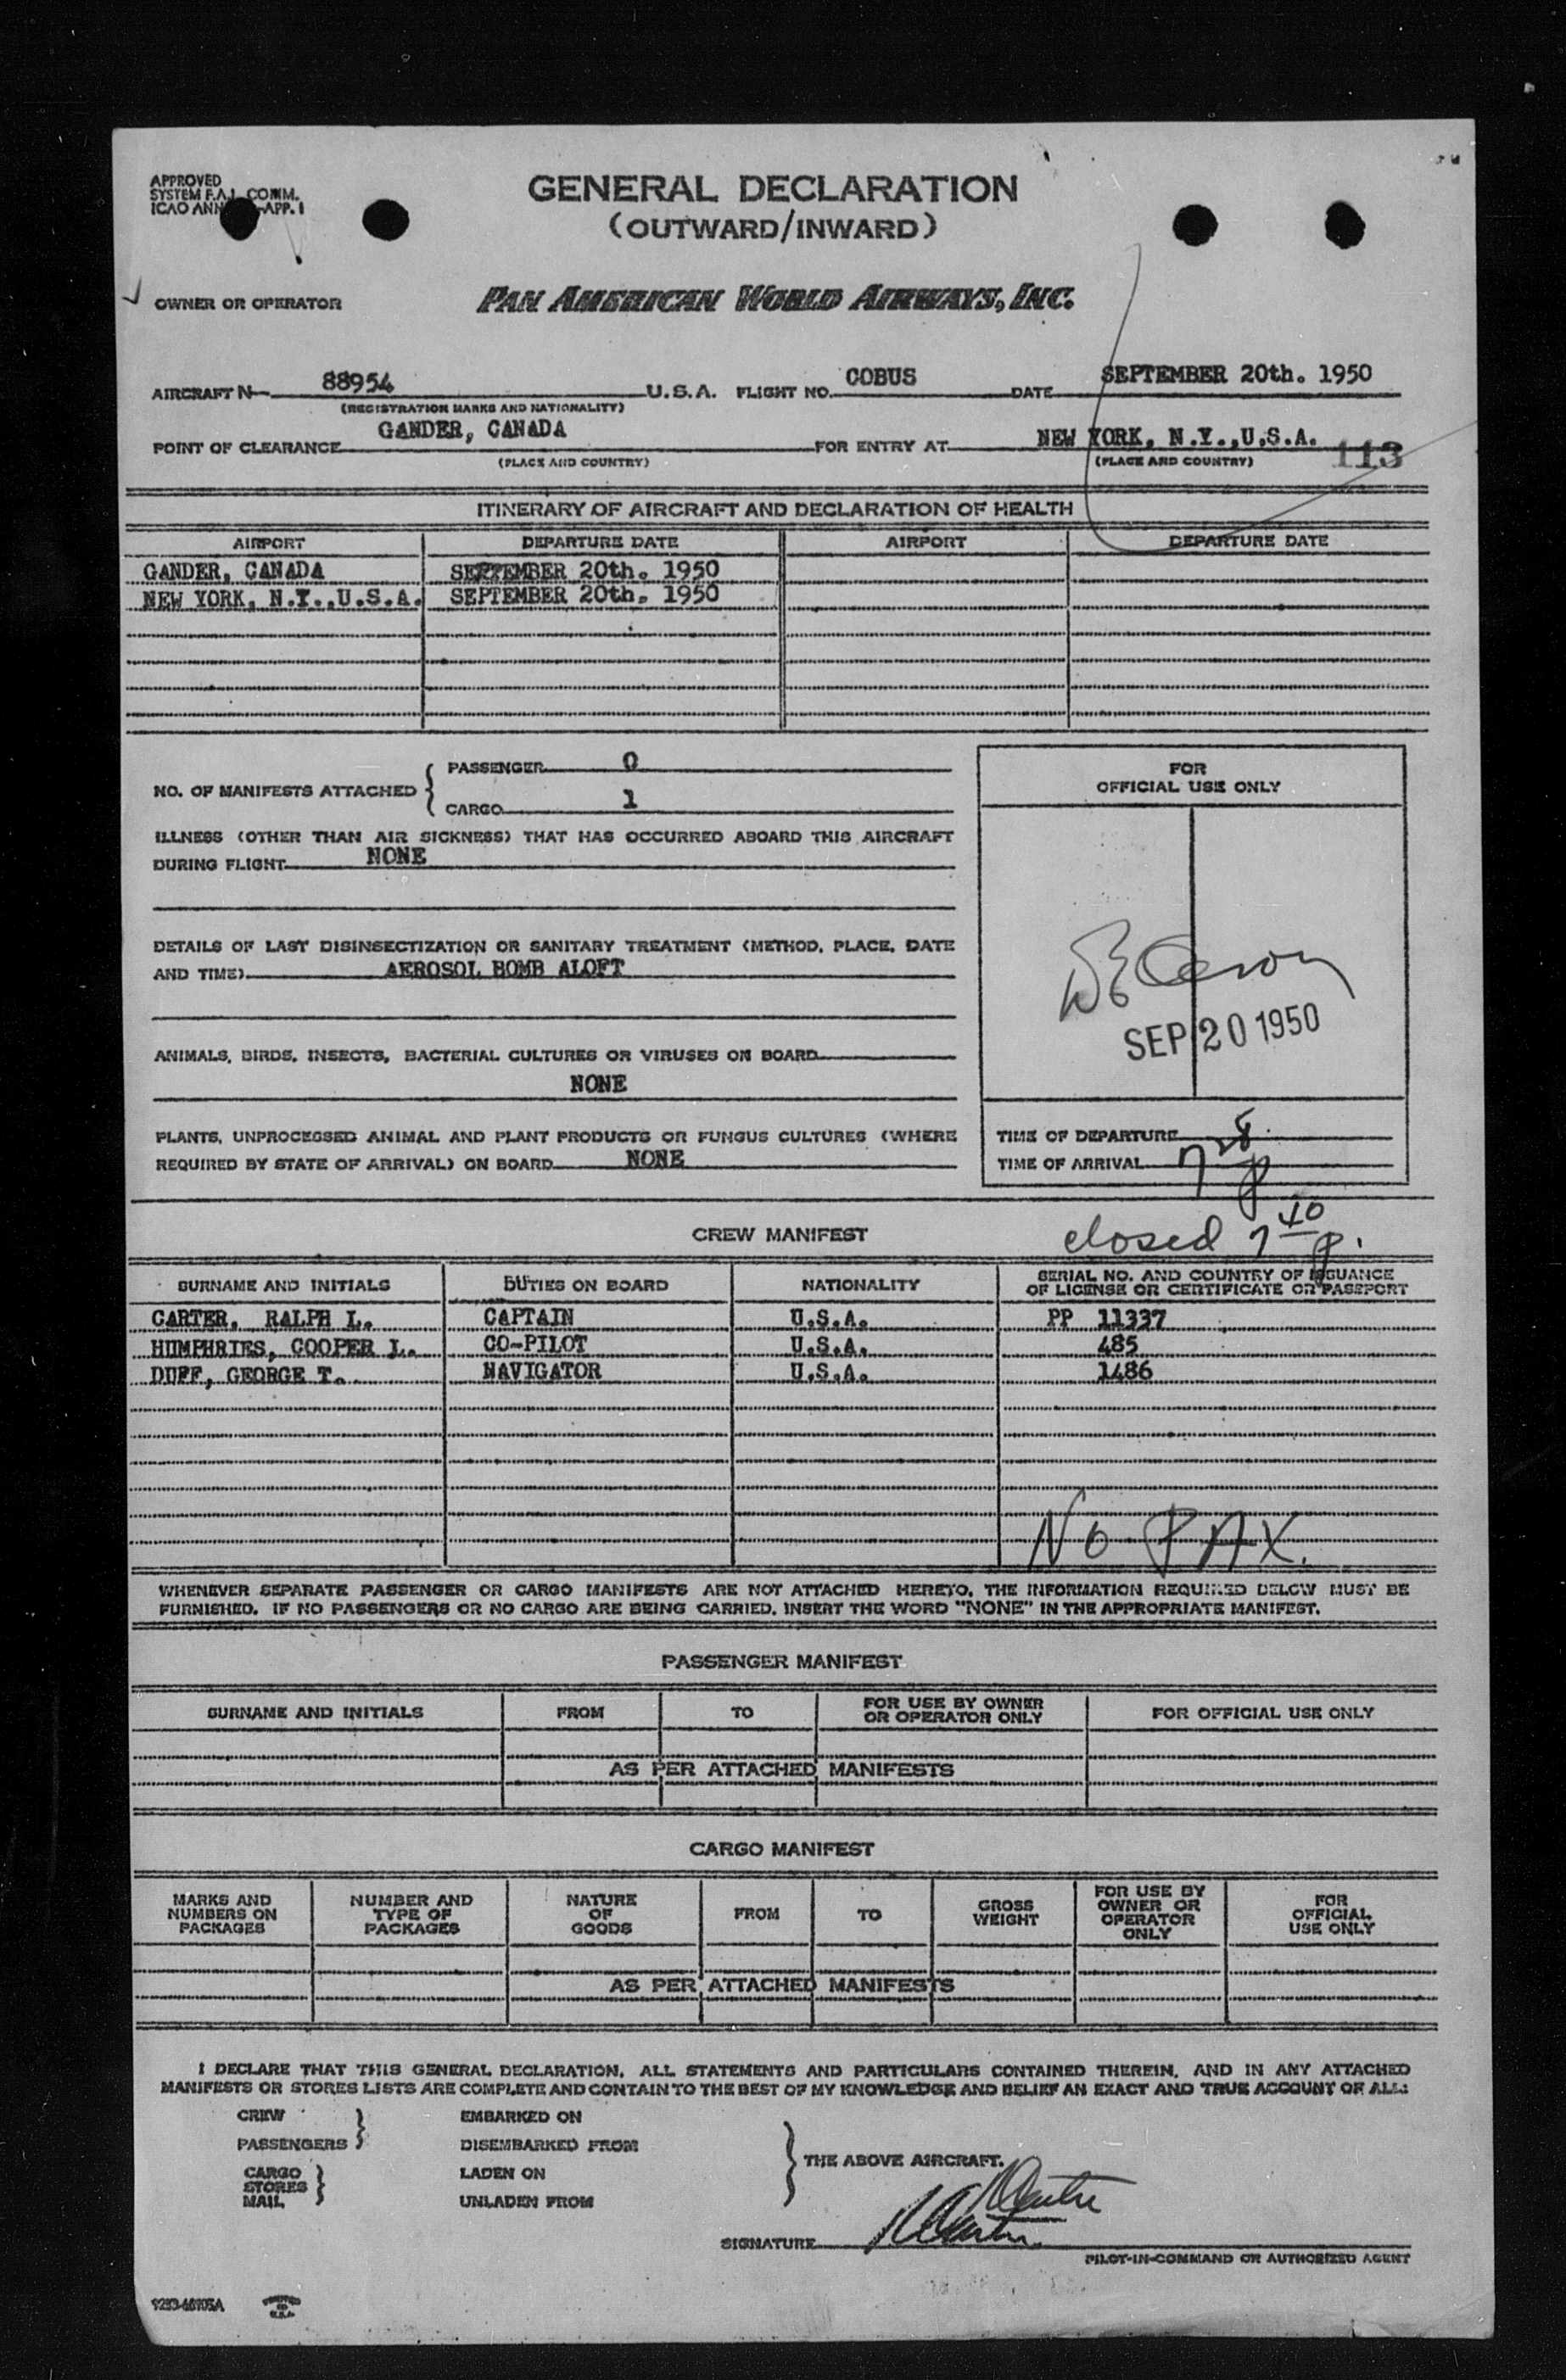 APPROVED
SYSTEM F.A.L. COMM.
ICAO ANN -APP. 1
GENERAL DECLARATION
(OUTWARD/INWARD)
OWNER OR OPERATOR PAN AMERICAN WORLD AIRWAYS, INC.
AIRCRAFT N- 88954 U.S.A. FLIGHT NO. COBUS DATE SEPTEMBER 20th. 1950
(REGISTRATION MARKS AND NATIONALITY)
POINT OF CLEARANCE GANDER, CANADA FOR ENTRY AT NEW YORK, N.Y.,U.S.A. 113
(PLACE AND COUNTRY) (PLACE AND COUNTRY)
ITINERARY OF AIRCRAFT AND DECLARATION OF HEALTH
AIRPORT DEPARTURE DATE AIRPORT DEPARTURE DATE
GANDER, CANADA SEPTEMBER 20th. 1950
NEW YORK, N.Y.,U.S.A. SEPTEMBER 20th. 1950
NO. OF MANIFESTS ATTACHED { PASSENGER 0
CARGO 1
FOR
OFFICIAL USE ONLY
ILLNESS (OTHER THAN AIR SICKNESS) THAT HAS OCCURRED ABOARD THIS AIRCRAFT
DURING FLIGHT NONE
DETAILS OF LAST DISINSECTIZATION OR SANITARY TREATMENT (METHOD, PLACE, DATE
AND TIME) AEROSOL BOMB ALOFT
SEP 20 1950
ANIMALS, BIRDS, INSECTS, BACTERIAL CULTURES OR VIRUSES ON BOARD
NONE
PLANTS, UNPROCESSED ANIMAL AND PLANT PRODUCTS OR FUNGUS CULTURES (WHERE
REQUIRED BY STATE OF ARRIVAL) ON BOARD NONE
TIME OF DEPARTURE
TIME OF ARRIVAL 7 28 p
closed 7 40 p.
CREW MANIFEST
SURNAME AND INITIALS DUTIES ON BOARD NATIONALITY SERIAL NO. AND COUNTRY OF ISSUANCE
OF LICENSE OR CERTIFICATE OR PASSPORT
CARTER, RALPH L. CAPTAIN U.S.A. PP 11337
HUMPHRIES, COOPER L. CO-PILOT U.S.A. 485
DUFF, GEORGE T. NAVIGATOR U.S.A. 1486
No PAX.
WHENEVER SEPARATE PASSENGER OR CARGO MANIFESTS ARE NOT ATTACHED HERETO, THE INFORMATION REQUIRED BELOW MUST BE
FURNISHED. IF NO PASSENGERS OR NO CARGO ARE BEING CARRIED, INSERT THE WORD "NONE" IN THE APPROPRIATE MANIFEST.
PASSENGER MANIFEST
SURNAME AND INITIALS FROM TO FOR USE BY OWNER
OR OPERATOR ONLY FOR OFFICIAL USE ONLY
AS PER ATTACHED MANIFESTS
CARGO MANIFEST
MARKS AND
NUMBERS ON
PACKAGES
NUMBER AND
TYPE OF
PACKAGES
NATURE
OF
GOODS
FROM
TO
GROSS
WEIGHT
FOR USE BY
OWNER OR
OPERATOR
ONLY
FOR
OFFICIAL
USE ONLY
AS PER ATTACHED MANIFESTS
I DECLARE THAT THIS GENERAL DECLARATION, ALL STATEMENTS AND PARTICULARS CONTAINED THEREIN, AND IN ANY ATTACHED
MANIFESTS OR STORES LISTS ARE COMPLETE AND CONTAIN TO THE BEST OF MY KNOWLEDGE AND BELIEF AN EXACT AND TRUE ACCOUNT OF ALL:
CREW EMBARKED ON
PASSENGERS } DISEMBARKED FROM
THE ABOVE AIRCRAFT.
CARGO LADEN ON
STORES }
MAIL UNLADEN FROM
SIGNATURE
PILOT-IN-COMMAND OR AUTHORIZED AGENT
PRINTED
IN
U.S.A.